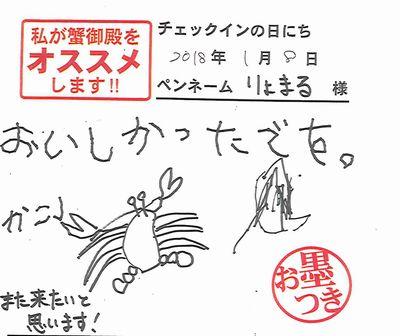 私が蟹御殿を
オススメ
します!!
チェックインの日にち
2018年 1月 8日
ペンネーム りょまる 様
おいしかったでを。
かに
また来たいと
思います!
お墨つき